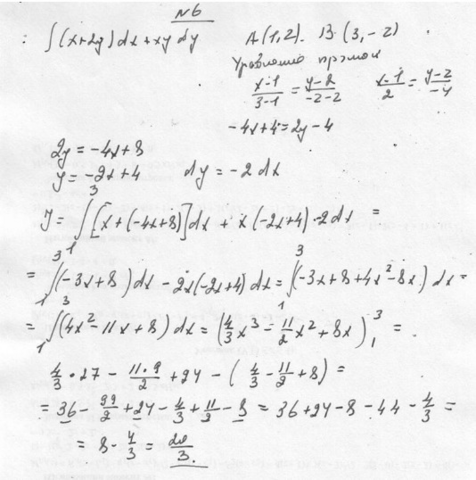 №6
: ∫(x+2y)dx+xy dy A(1,2). B(3,-2)
Уравнение прямой
(x-1)/(3-1) = (y-2)/(-2-2) (x-1)/2 = (y-2)/-4
-4x+4=2y-4
2y=-4x+8
y=-2x+4 dy=-2dx
J = ∫₁³[x+(-4x+8)]dx + x(-2x+4)·-2dx =
= ∫₁³(-3x+8)dx - 2x(-2x+4)dx = ∫₁³(-3x+8+4x²-8x)dx =
= ∫₁³(4x²-11x+8)dx = (4/3 x³ - 11/2 x² + 8x)₁³ =
4/3·27 - 11·9/2 + 24 - (4/3 - 11/2 + 8) =
= 36 - 99/2 + 24 - 4/3 + 11/2 - 8 = 36+24-8-44-4/3 =
= 8 - 4/3 = 20/3.